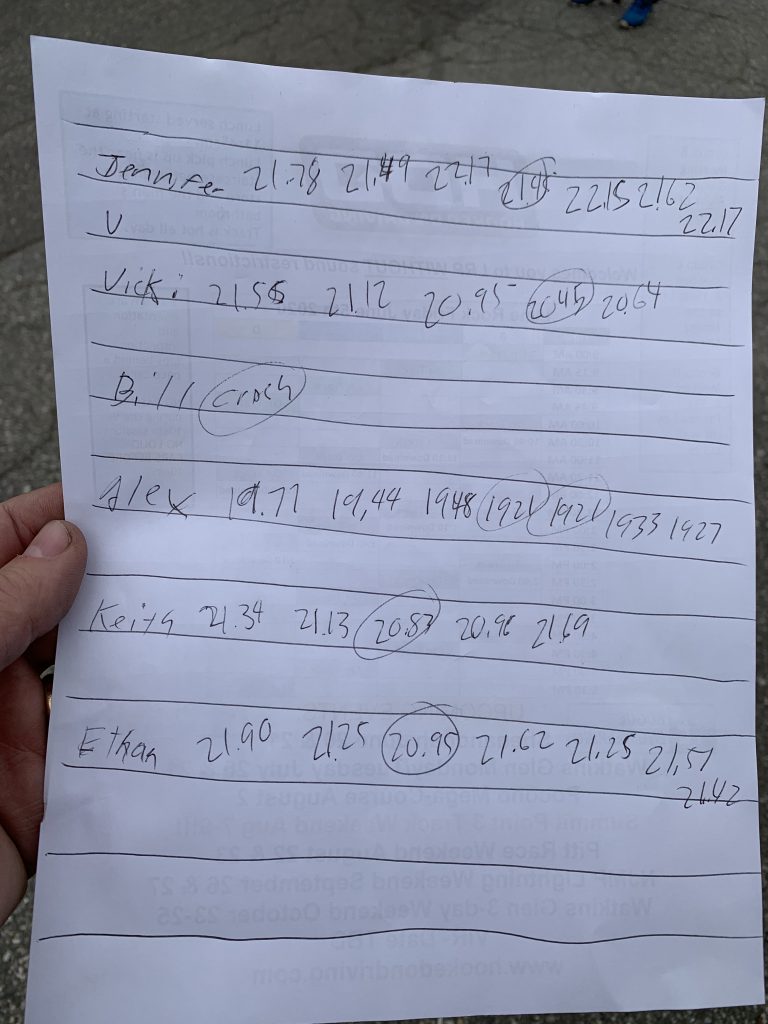 Jennifer 21.78 21.49 22.17 22.15 21.62
22.17
V
Vicki 21.56 21.12 20.95 20.45 20.64
Bill crash
Alex 19.77 19,44 1948 1921 1921 1933 1927
Keith 21.34 21.13 20.83 20.96 21.69
Ethan 21.90 21.25 20.95 21.62 21.25 21.51
21.42